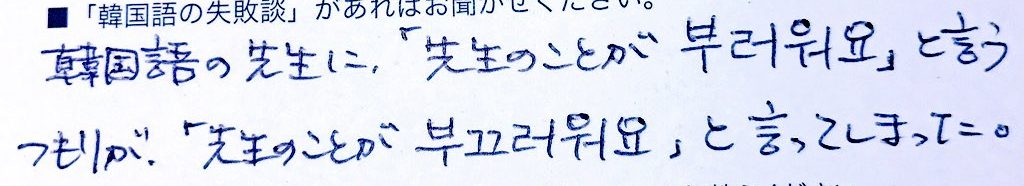 ■「韓国語の失敗談」があればお聞かせください。
韓国語の先生に、「先生のことが 부러워요」と言う
つもりが、「先生のことが 부끄러워요」と言ってしまった。